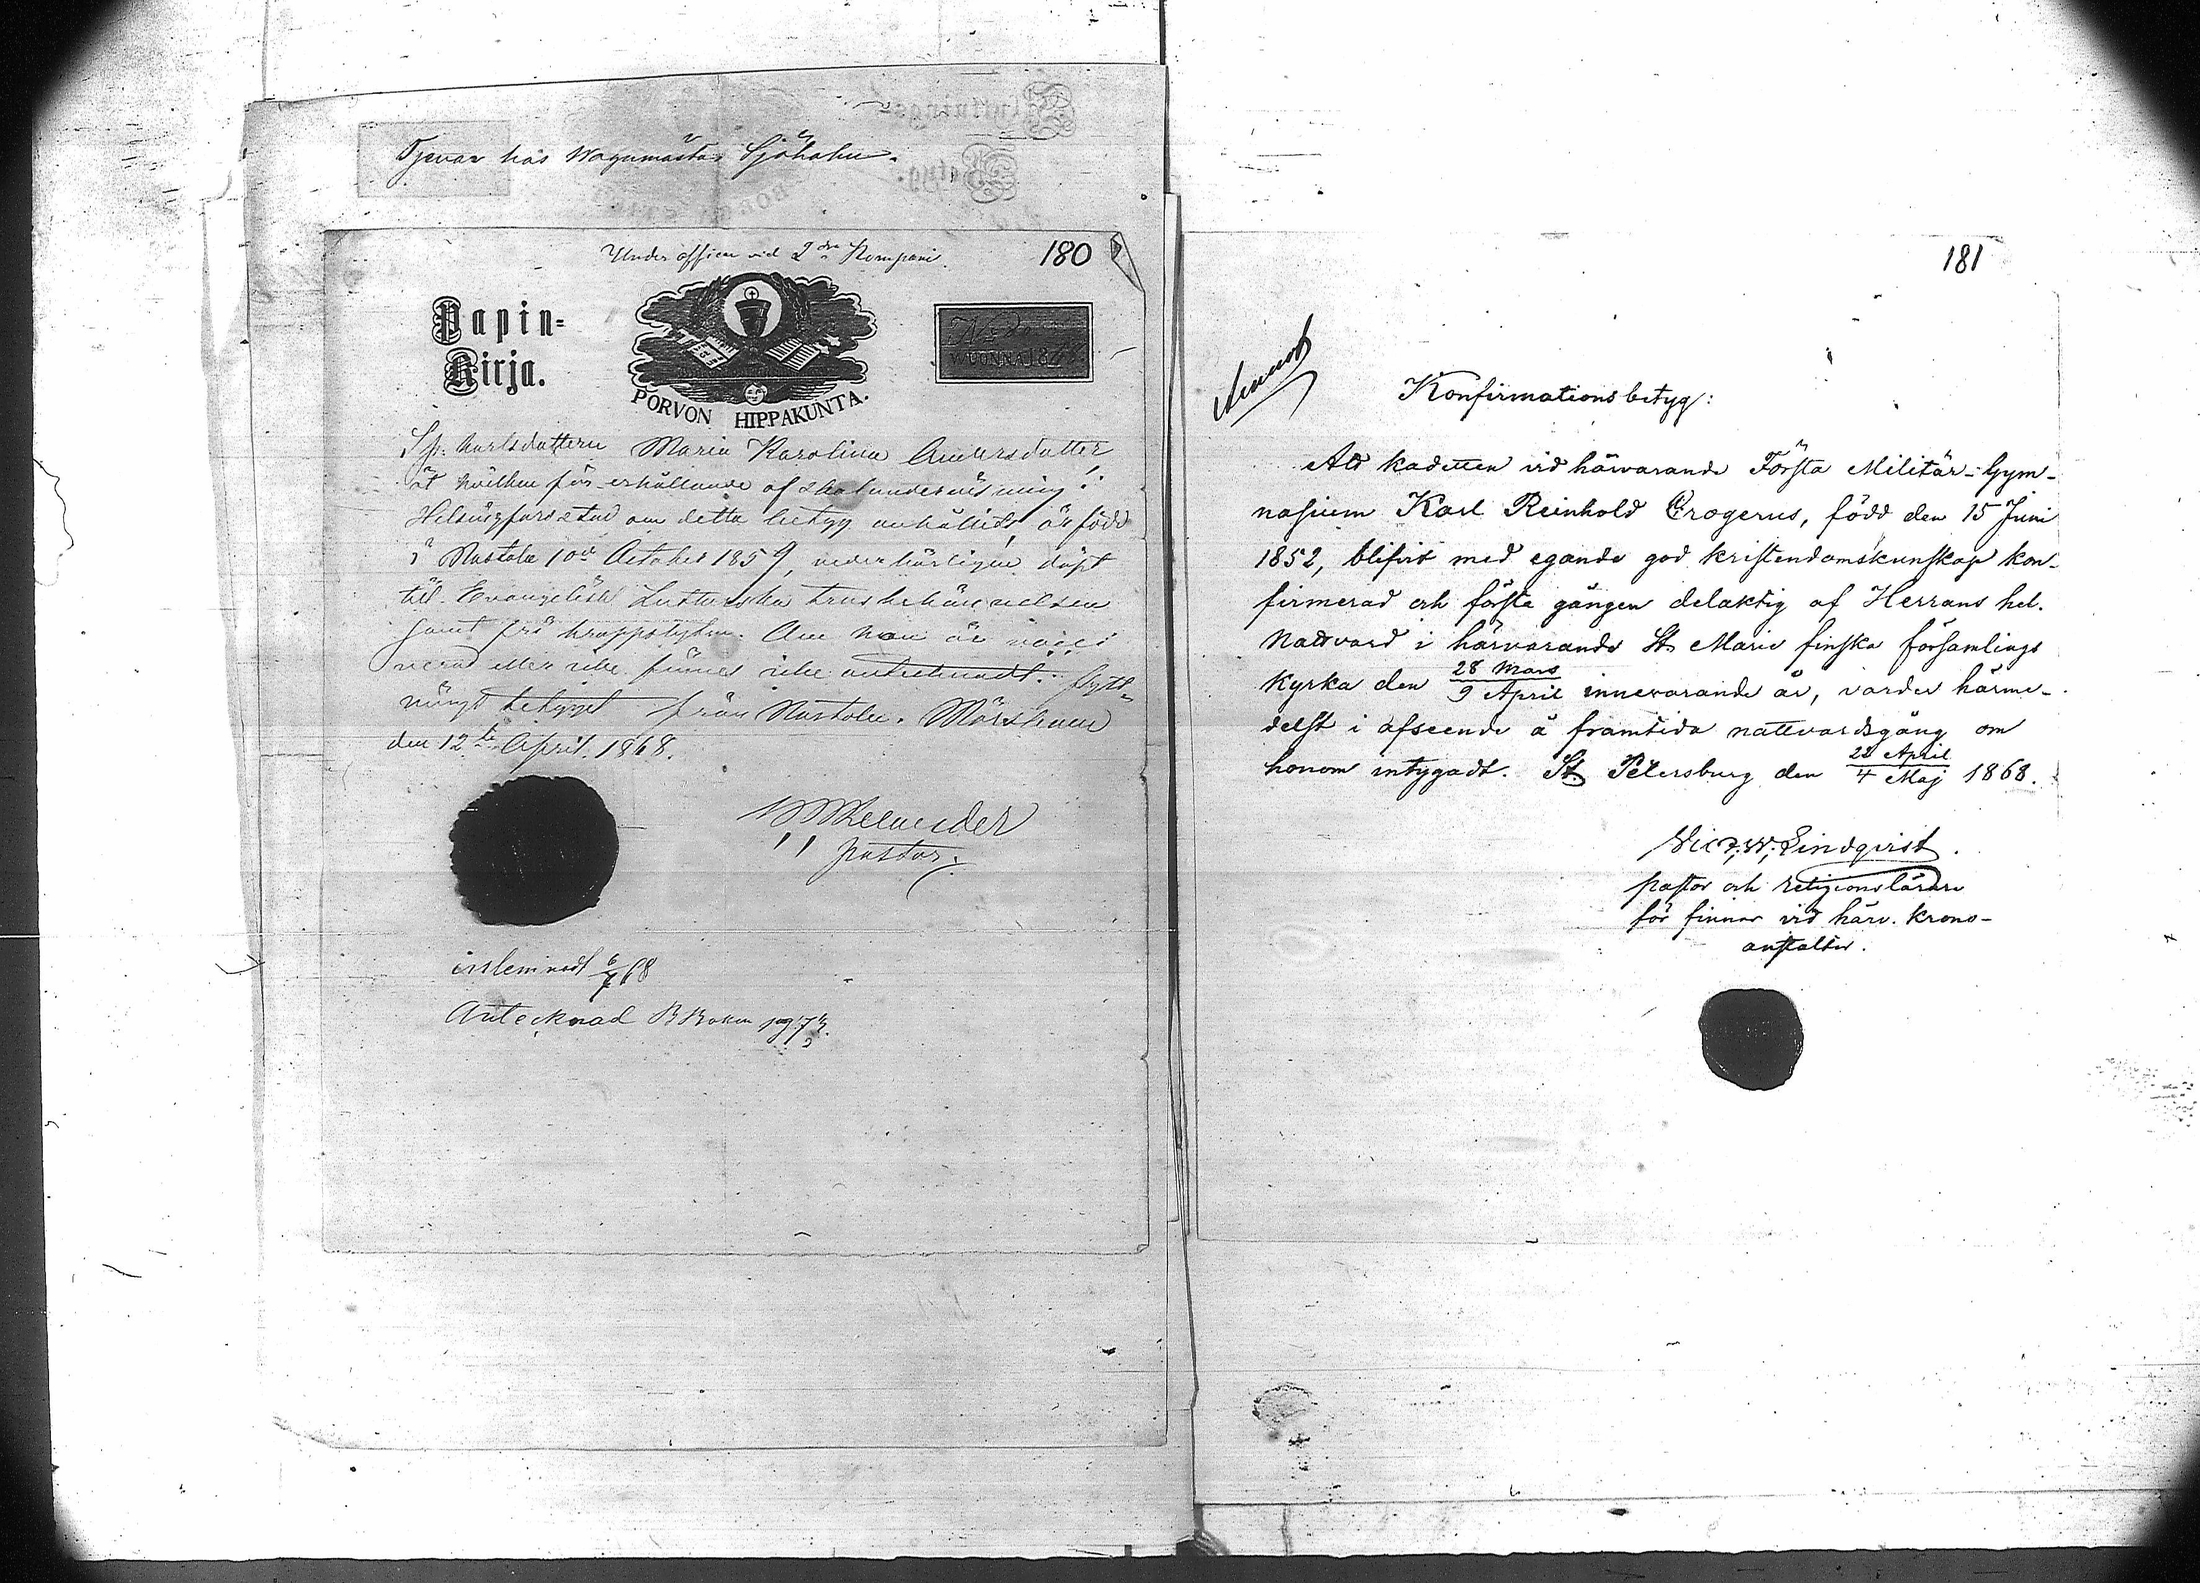 Tjenar hos Wagnmästar Sjöholm.
Under officer vid 2dra Kompani.
180
Papin-
Kirja.
PORVON HIPPAKUNTA.
WUONNA 18
Maria Karolina Andersdotter
åt hvilken för erhållande af skolundervisning i
Helsingfors stad om detta betyg anhålles, är född
i Nastola 10de October 1859, vederbörligen döpt
till Evangelisk Lutherska trosbekännelsen
samt fri kroppslyten. Om hon är vacci
nerad eller icke finnes icke antecknadt i flytt-
nings betyget från Nastola. Mörskom
den 12te April 1868.
pastor.
inlemnadt 6/7 68
Antecknad B Boken pag 73.
181
Konfirmationsbetyg:
Att kadetten vid härvarande Första Militär-Gym-
nasium Karl Reinhold Crogerus, född den 15 Juni
1852, blifvit med egande god kristendomskunskap kon-
firmerad och första gången delaktig af Herrans hel.
Nattvard i härvarande St. Marie finska församlings
Kyrka den 28 Mars / 9 April innevarande år, varder härme-
delst i afseende å framtida nattvardsgång om
honom intygadt. St. Petersburg den 22 April / 4 Maj 1868.
Vict. W. Lindqvist.
pastor och religionslärare
för finnar vid härv. krono-
anstalter.